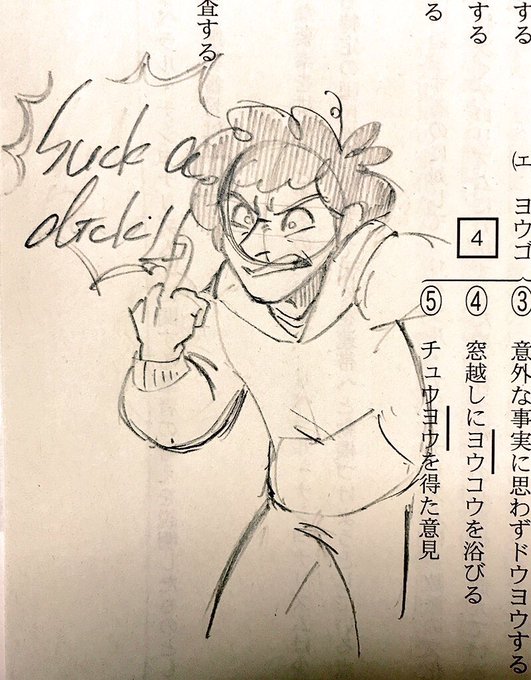 する
する
る
査する
(エ ヨウゴ
4
③ 意外な事実に思わずドウヨウする
④ 窓越しにヨウコウを浴びる
⑤ チュウヨウを得た意見
Suck a
dick!!